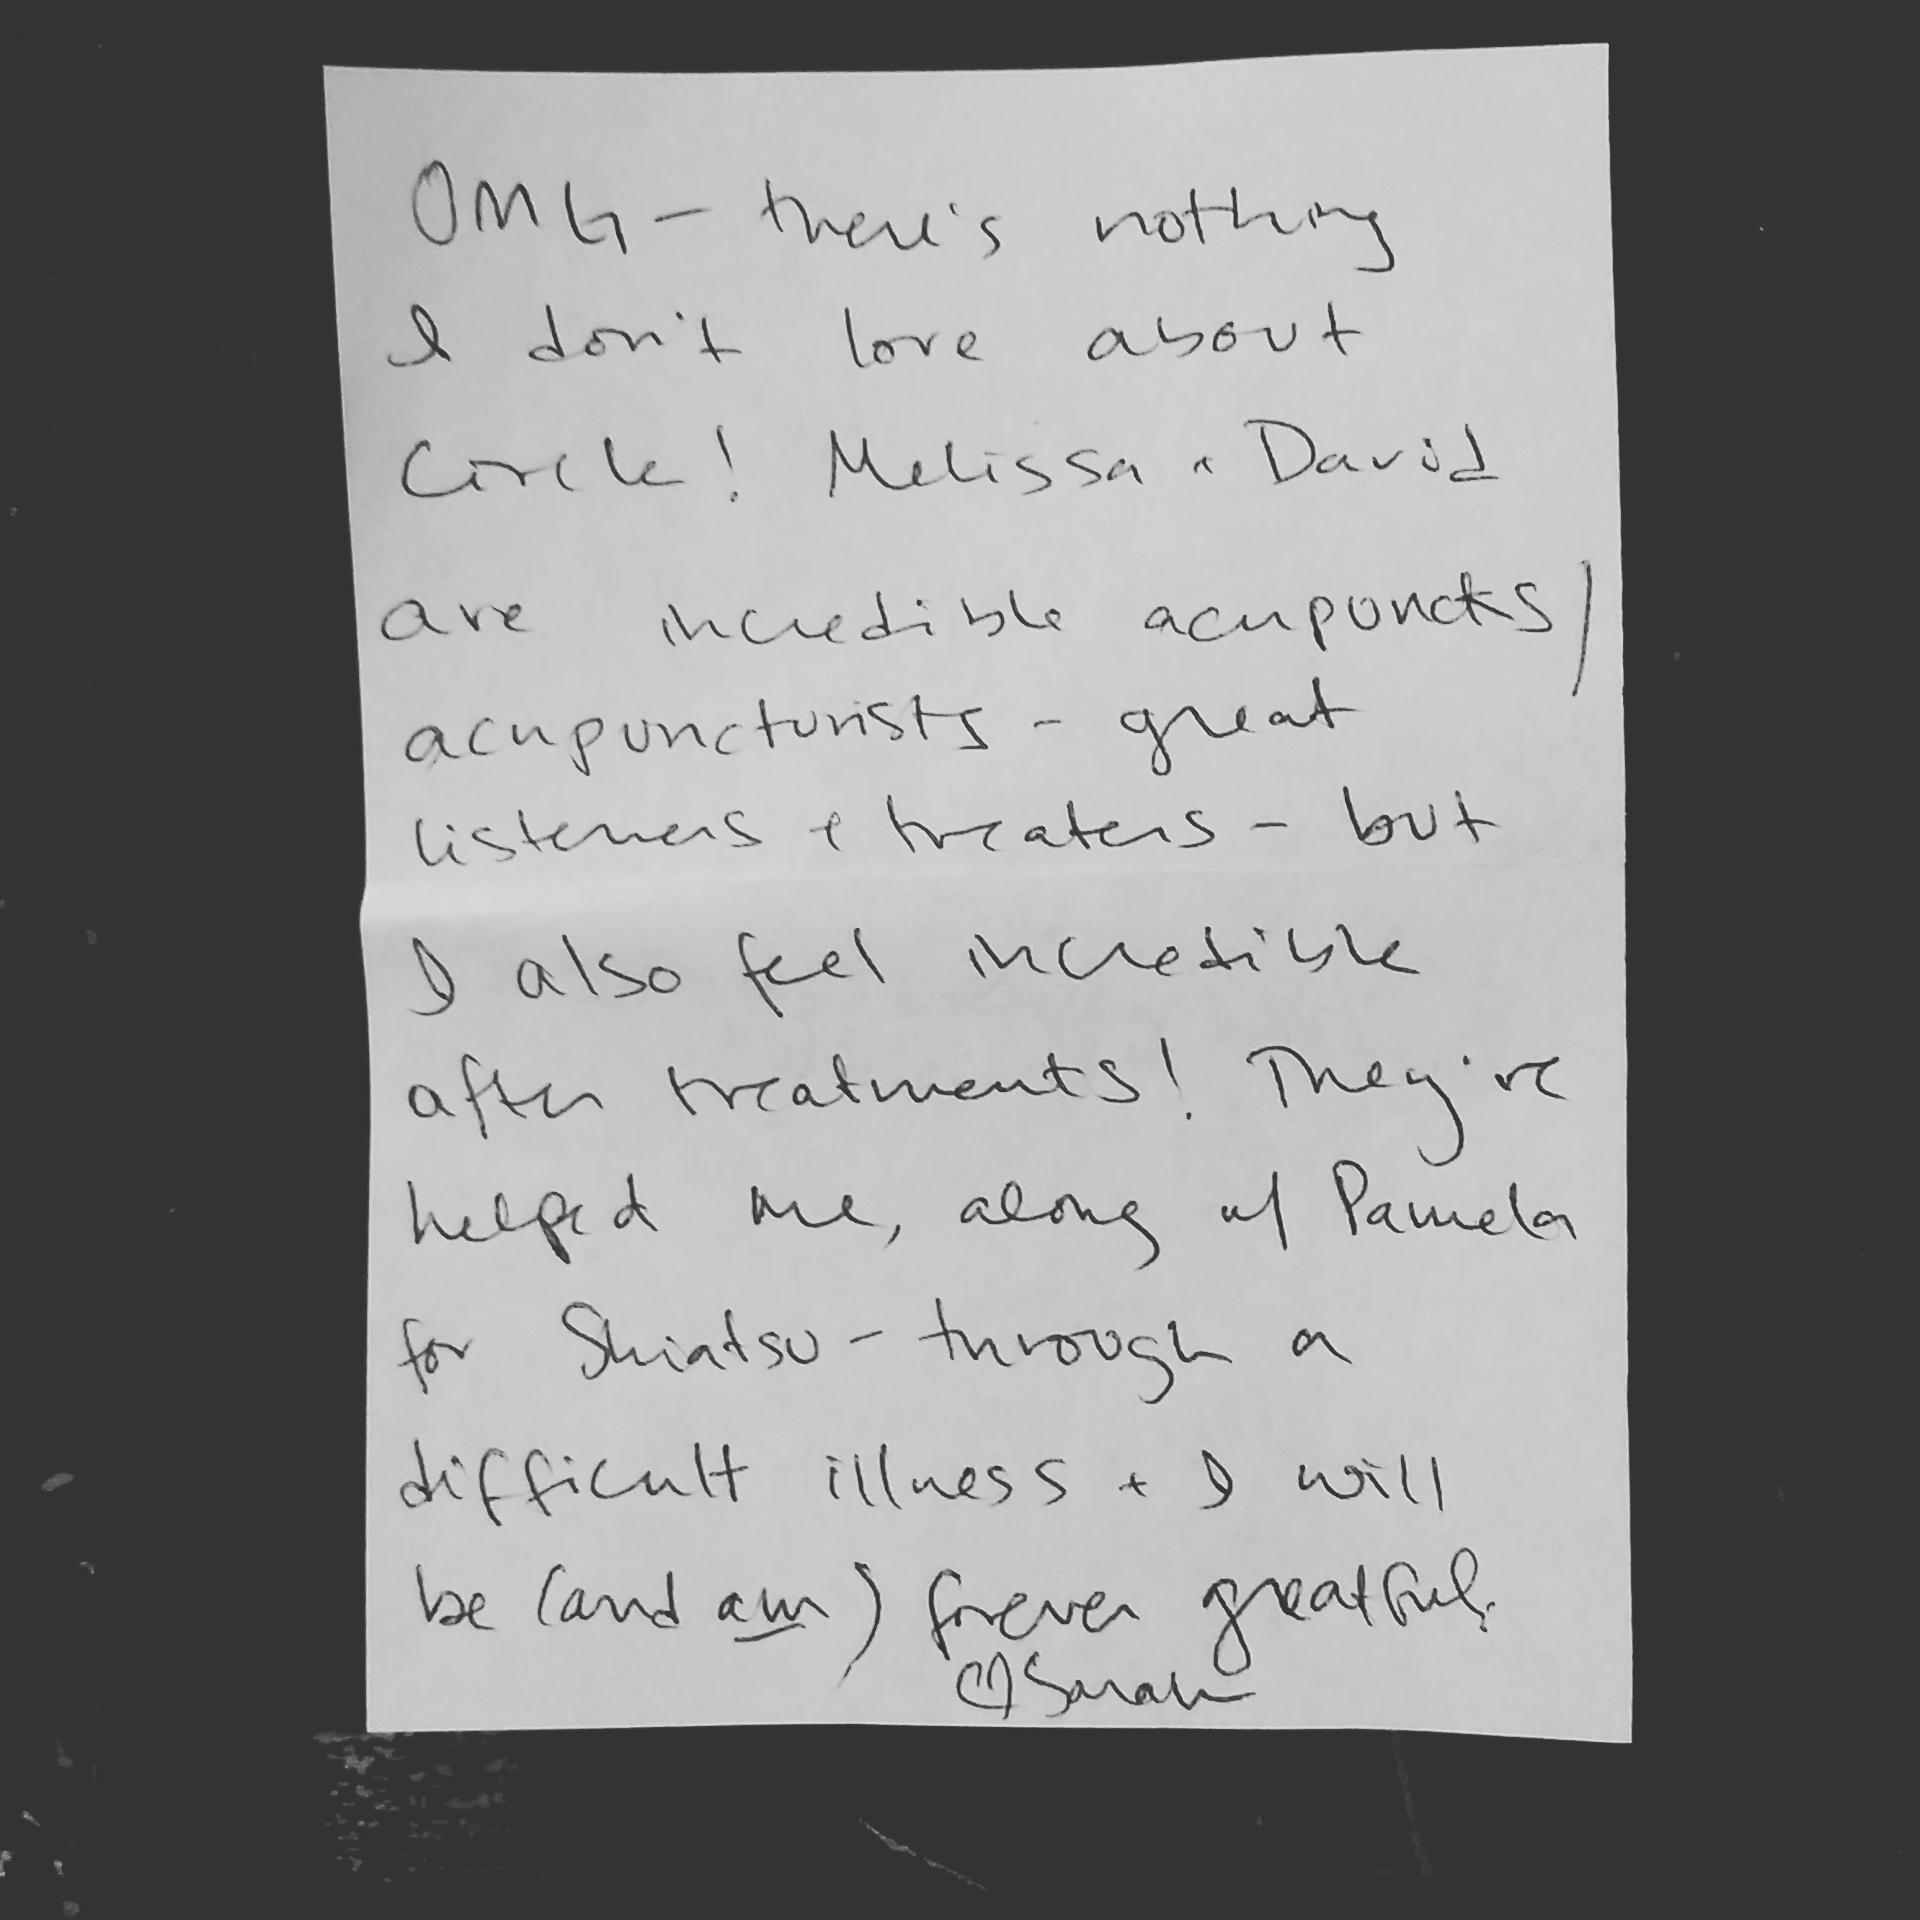 OMG - there's nothing
I don't love about
Circle! Melissa + David
are incredible acupuncts/
acupuncturists - great
listeners + treaters - but
I also feel incredible
after treatments! They're
helped me, along w/ Pamela
for Shiatsu - through a
difficult illness + I will
be (and am) forever greatful.
♡ Sarah